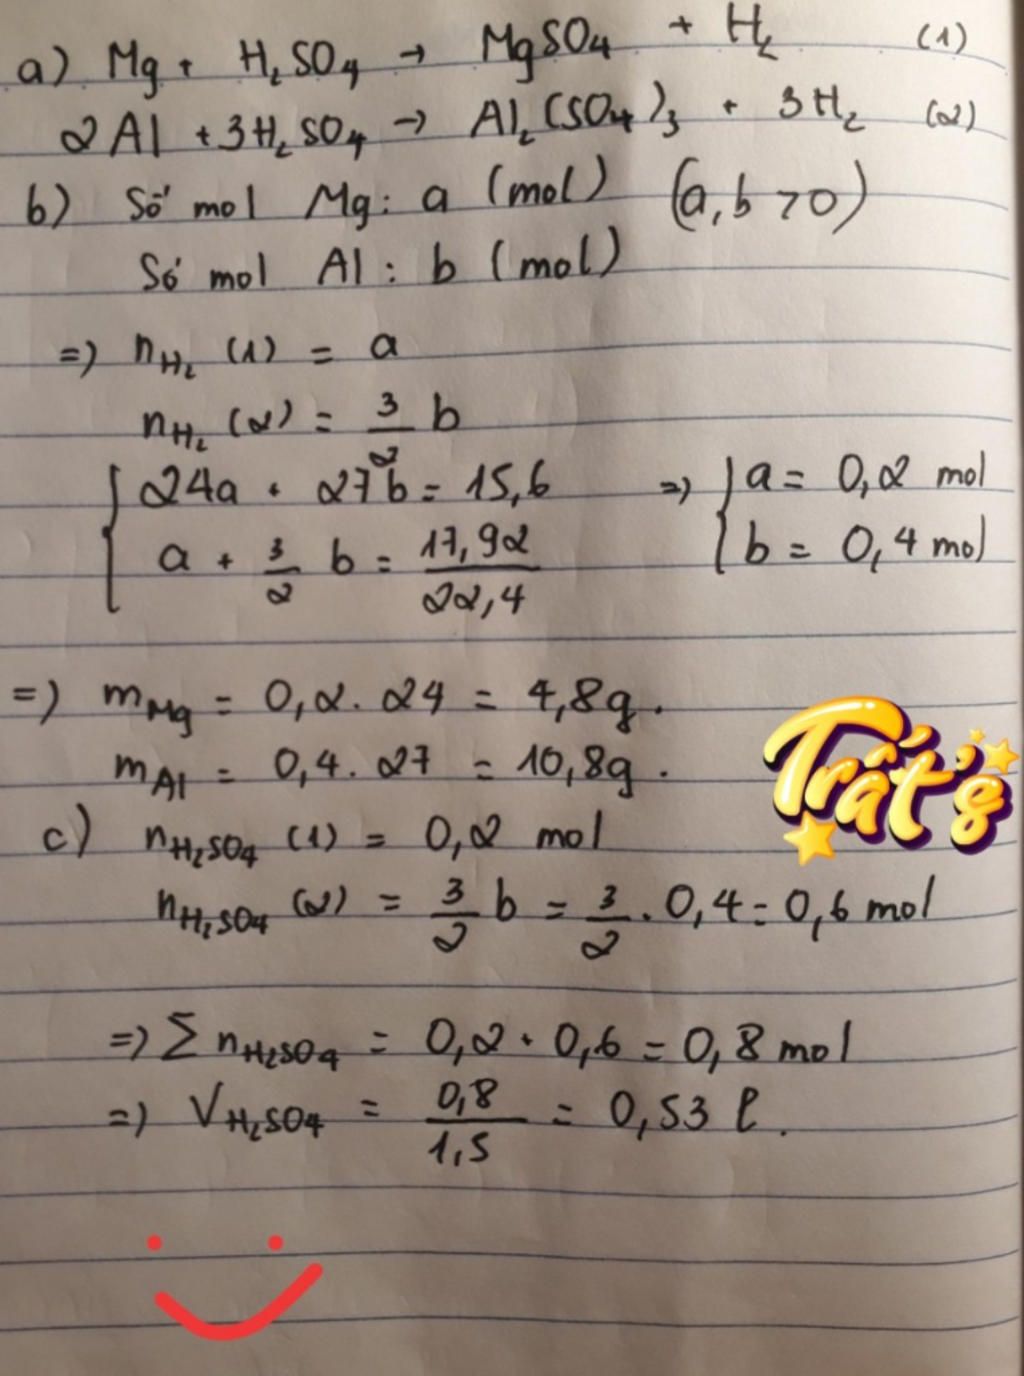 a) Mg + H₂SO₄ → MgSO₄ + H₂ (1)
2Al + 3H₂SO₄ → Al₂(SO₄)₃ + 3H₂ (2)
b) Số mol Mg: a (mol) (a, b > 0)
Số mol Al: b (mol)
=) nH₂ (1) = a
nH₂ (2) = 3/2 b
{ 24a + 27b = 15,6 =) { a = 0,2 mol
a + 3/2 b = 17,92/22,4 b = 0,4 mol
=) mMg = 0,2. 24 = 4,8g.
mAl = 0,4. 27 = 10,8g.
Trất's
c) nH₂SO₄ (1) = 0,2 mol
nH₂SO₄ (2) = 3/2 b = 3/2 . 0,4 = 0,6 mol
=) Σ nH₂SO₄ = 0,2 + 0,6 = 0,8 mol
=) VH₂SO₄ = 0,8/1,5 = 0,53 l.